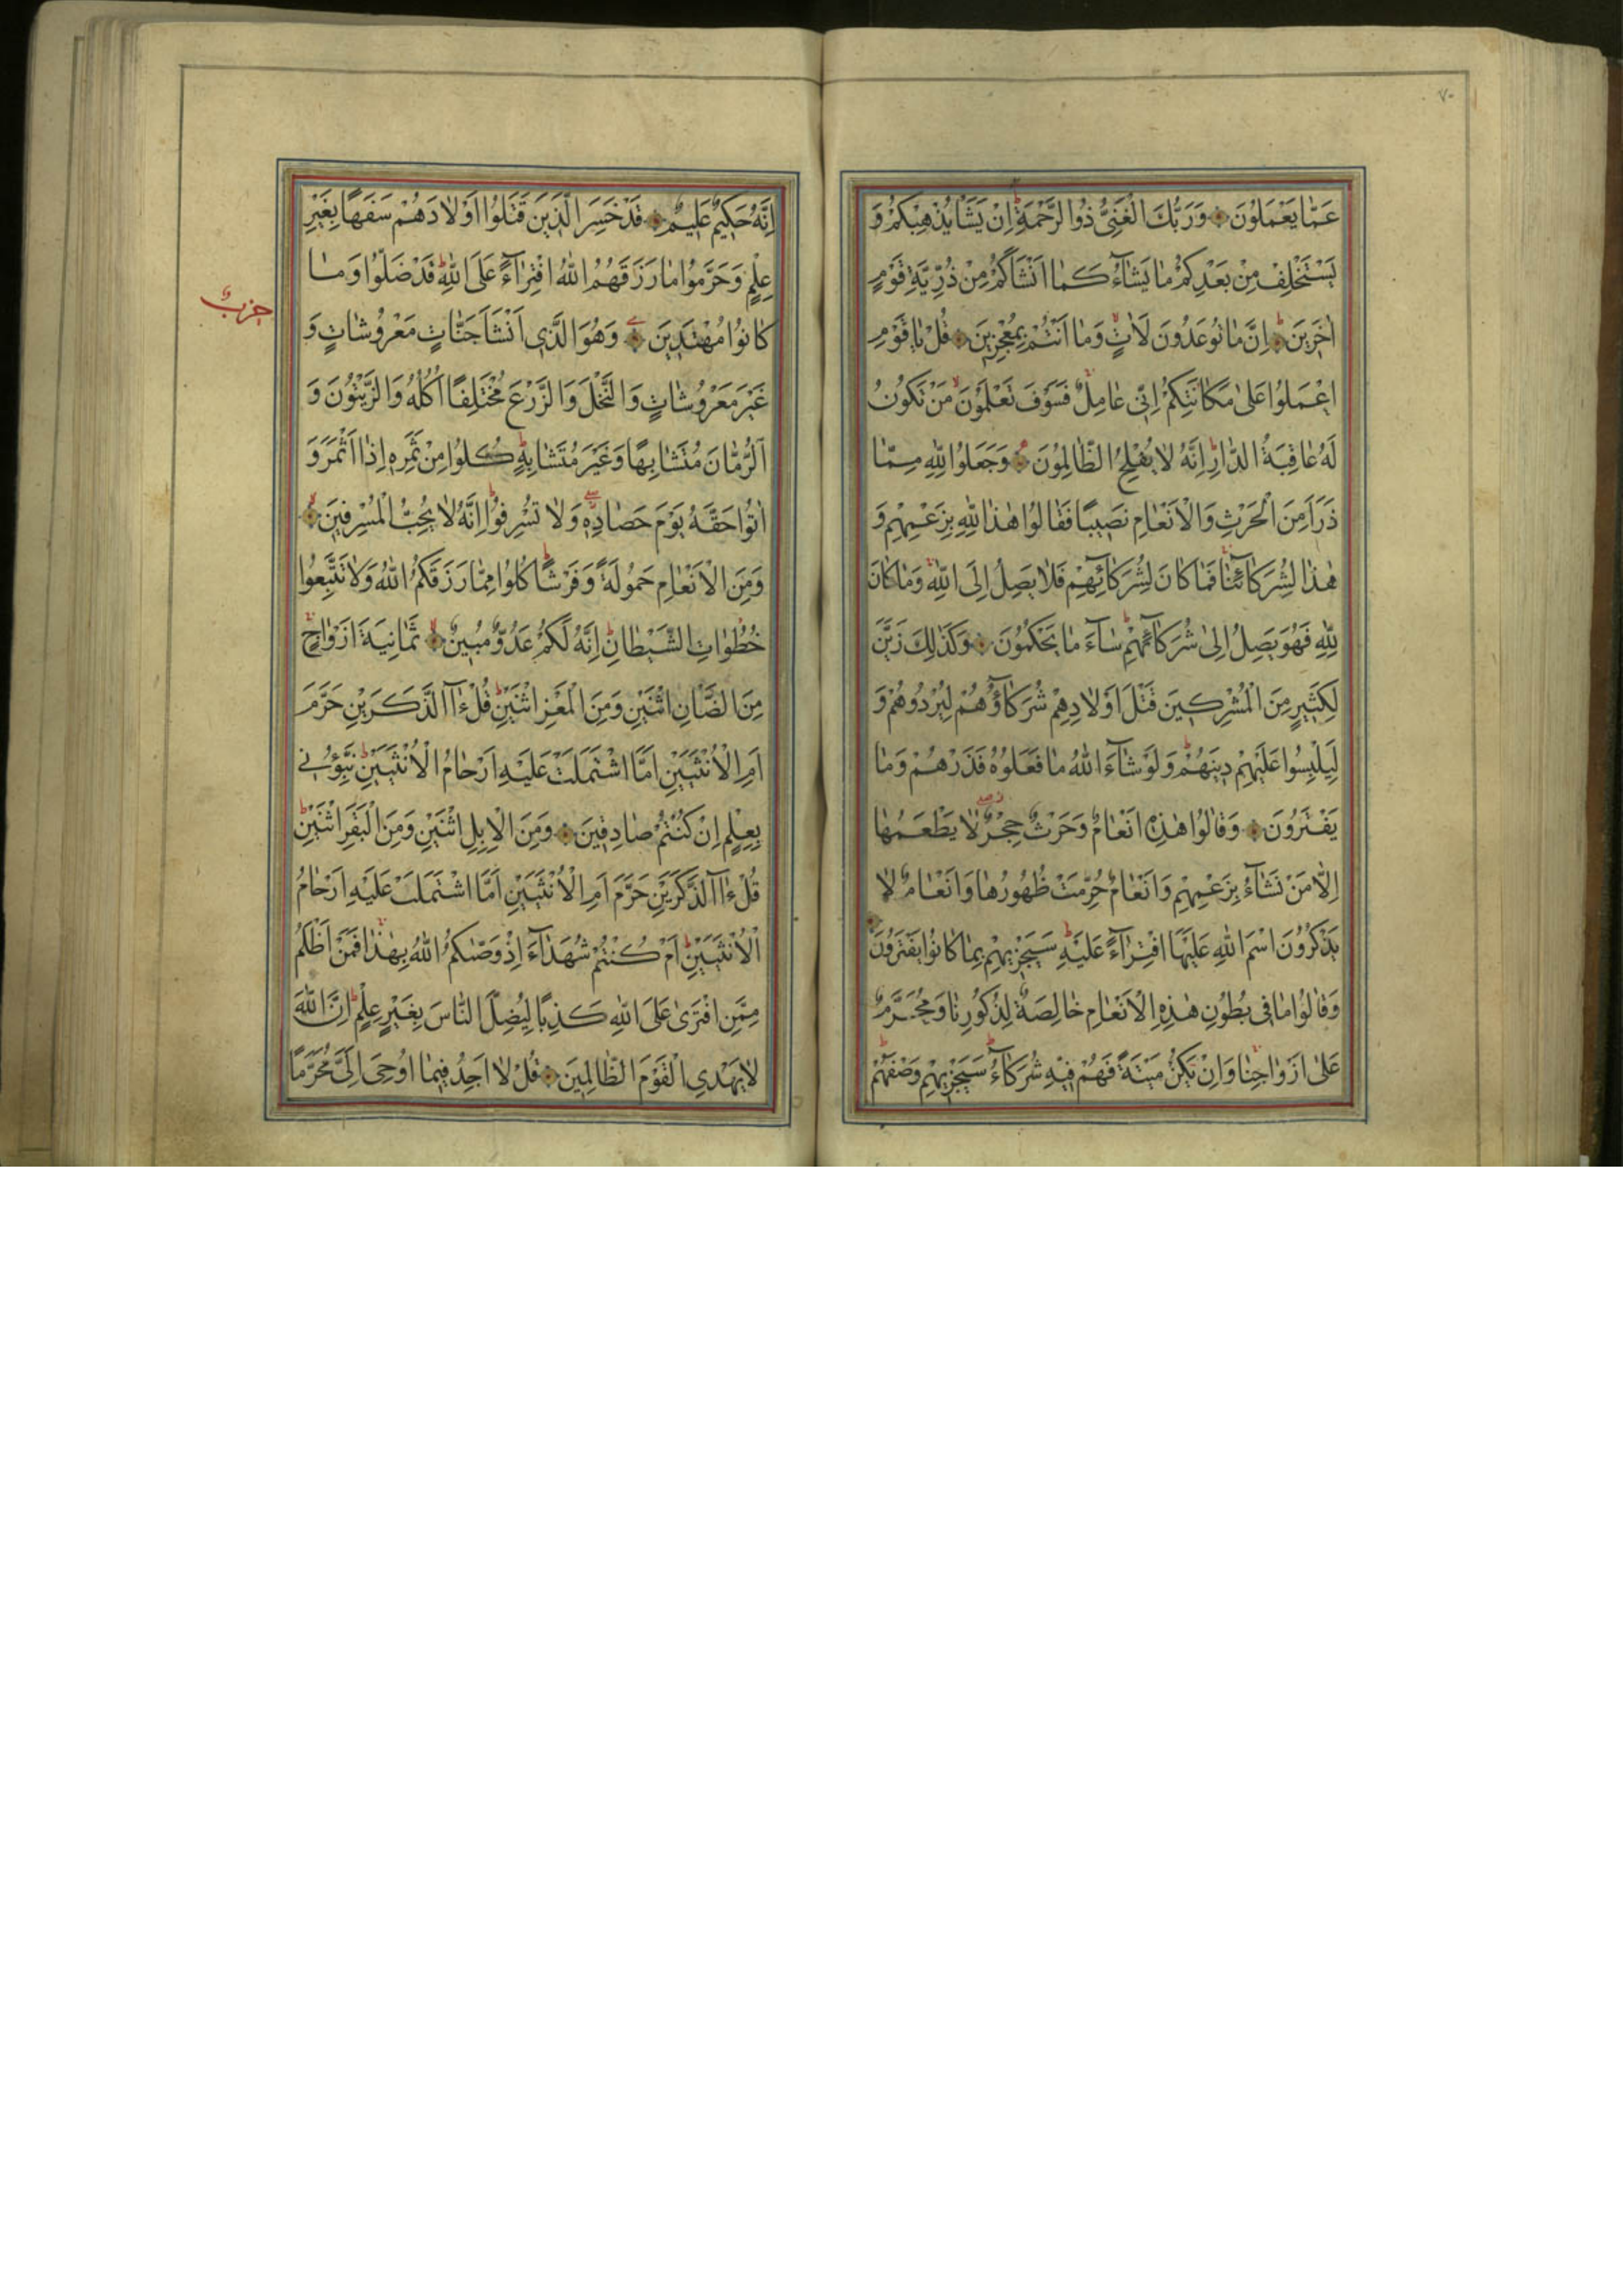 ٧٠
عَمَّا يَعْمَلُونَ وَرَبُّكَ الْغَنِىُّ ذُو الرَّحْمَةِ اِنْ يَشَاْ يُذْهِبْكُمْ وَ
يَسْتَخْلِفْ مِنْ بَعْدِكُمْ مَا يَشَآءُ كَمَا اَنْشَاَكُمْ مِنْ ذُرِّيَّةِ قَوْمٍ
اٰخَرِينَ اِنَّ مَا تُوعَدُونَ لَاٰتٍ وَمَا اَنْتُمْ بِمُعْجِزِينَ قُلْ يَا قَوْمِ
اعْمَلُوا عَلٰى مَكَانَتِكُمْ اِنِّى عَامِلٌ فَسَوْفَ تَعْلَمُونَ مَنْ تَكُونُ
لَهُ عَاقِبَةُ الدَّارِ اِنَّهُ لَا يُفْلِحُ الظَّالِمُونَ وَجَعَلُوا لِلّٰهِ مِمَّا
ذَرَاَ مِنَ الْحَرْثِ وَالْاَنْعَامِ نَصِيبًا فَقَالُوا هٰذَا لِلّٰهِ بِزَعْمِهِمْ وَ
هٰذَا لِشُرَكَائِنَا فَمَا كَانَ لِشُرَكَآئِهِمْ فَلَا يَصِلُ اِلَى اللّٰهِ وَمَا كَانَ
لِلّٰهِ فَهُوَ يَصِلُ اِلٰى شُرَكَآئِهِمْ سَآءَ مَا يَحْكُمُونَ وَكَذٰلِكَ زَيَّنَ
لِكَثِيرٍ مِنَ الْمُشْرِكِينَ قَتْلَ اَوْلَادِهِمْ شُرَكَآؤُهُمْ لِيُرْدُوهُمْ وَ
لِيَلْبِسُوا عَلَيْهِمْ دِينَهُمْ وَلَوْ شَآءَ اللّٰهُ مَا فَعَلُوهُ فَذَرْهُمْ وَمَا
يَفْتَرُونَ وَقَالُوا هٰذِهِ اَنْعَامٌ وَحَرْثٌ حِجْرٌ لَا يَطْعَمُهَا
اِلَّا مَنْ نَشَآءُ بِزَعْمِهِمْ وَاَنْعَامٌ حُرِّمَتْ ظُهُورُهَا وَاَنْعَامٌ لَا
يَذْكُرُونَ اسْمَ اللّٰهِ عَلَيْهَا افْتِرَآءً عَلَيْهِ سَيَجْزِيهِمْ بِمَا كَانُوا يَفْتَرُونَ
وَقَالُوا مَا فِى بُطُونِ هٰذِهِ الْاَنْعَامِ خَالِصَةٌ لِذُكُورِنَا وَمُحَرَّمٌ
عَلٰى اَزْوَاجِنَا وَاِنْ يَكُنْ مَيْتَةً فَهُمْ فِيهِ شُرَكَآءُ سَيَجْزِيهِمْ وَصْفَهُمْ
اِنَّهُ حَكِيمٌ عَلِيمٌ قَدْ خَسِرَ الَّذِينَ قَتَلُوا اَوْلَادَهُمْ سَفَهًا بِغَيْرِ
عِلْمٍ وَحَرَّمُوا مَا رَزَقَهُمُ اللّٰهُ افْتِرَآءً عَلَى اللّٰهِ قَدْ ضَلُّوا وَمَا
حزب
كَانُوا مُهْتَدِينَ وَهُوَ الَّذِى اَنْشَاَ جَنَّاتٍ مَعْرُوشَاتٍ وَ
غَيْرَ مَعْرُوشَاتٍ وَالنَّخْلَ وَالزَّرْعَ مُخْتَلِفًا اُكُلُهُ وَالزَّيْتُونَ وَ
الرُّمَّانَ مُتَشَابِهًا وَغَيْرَ مُتَشَابِهٍ كُلُوا مِنْ ثَمَرِهِ اِذَا اَثْمَرَ وَ
اٰتُوا حَقَّهُ يَوْمَ حَصَادِهِ وَلَا تُسْرِفُوا اِنَّهُ لَا يُحِبُّ الْمُسْرِفِينَ
وَمِنَ الْاَنْعَامِ حَمُولَةً وَفَرْشًا كُلُوا مِمَّا رَزَقَكُمُ اللّٰهُ وَلَا تَتَّبِعُوا
خُطُوَاتِ الشَّيْطَانِ اِنَّهُ لَكُمْ عَدُوٌّ مُبِينٌ ثَمَانِيَةَ اَزْوَاجٍ
مِنَ الضَّاْنِ اثْنَيْنِ وَمِنَ الْمَعْزِ اثْنَيْنِ قُلْ ءٰآلذَّكَرَيْنِ حَرَّمَ
اَمِ الْاُنْثَيَيْنِ اَمَّا اشْتَمَلَتْ عَلَيْهِ اَرْحَامُ الْاُنْثَيَيْنِ نَبِّؤُنِى
بِعِلْمٍ اِنْ كُنْتُمْ صَادِقِينَ وَمِنَ الْاِبِلِ اثْنَيْنِ وَمِنَ الْبَقَرِ اثْنَيْنِ
قُلْ ءٰآلذَّكَرَيْنِ حَرَّمَ اَمِ الْاُنْثَيَيْنِ اَمَّا اشْتَمَلَتْ عَلَيْهِ اَرْحَامُ
الْاُنْثَيَيْنِ اَمْ كُنْتُمْ شُهَدَآءَ اِذْ وَصّٰىكُمُ اللّٰهُ بِهٰذَا فَمَنْ اَظْلَمُ
مِمَّنِ افْتَرٰى عَلَى اللّٰهِ كَذِبًا لِيُضِلَّ النَّاسَ بِغَيْرِ عِلْمٍ اِنَّ اللّٰهَ
لَا يَهْدِى الْقَوْمَ الظَّالِمِينَ قُلْ لَا اَجِدُ فِيمَا اُوحِىَ اِلَىَّ مُحَرَّمًا